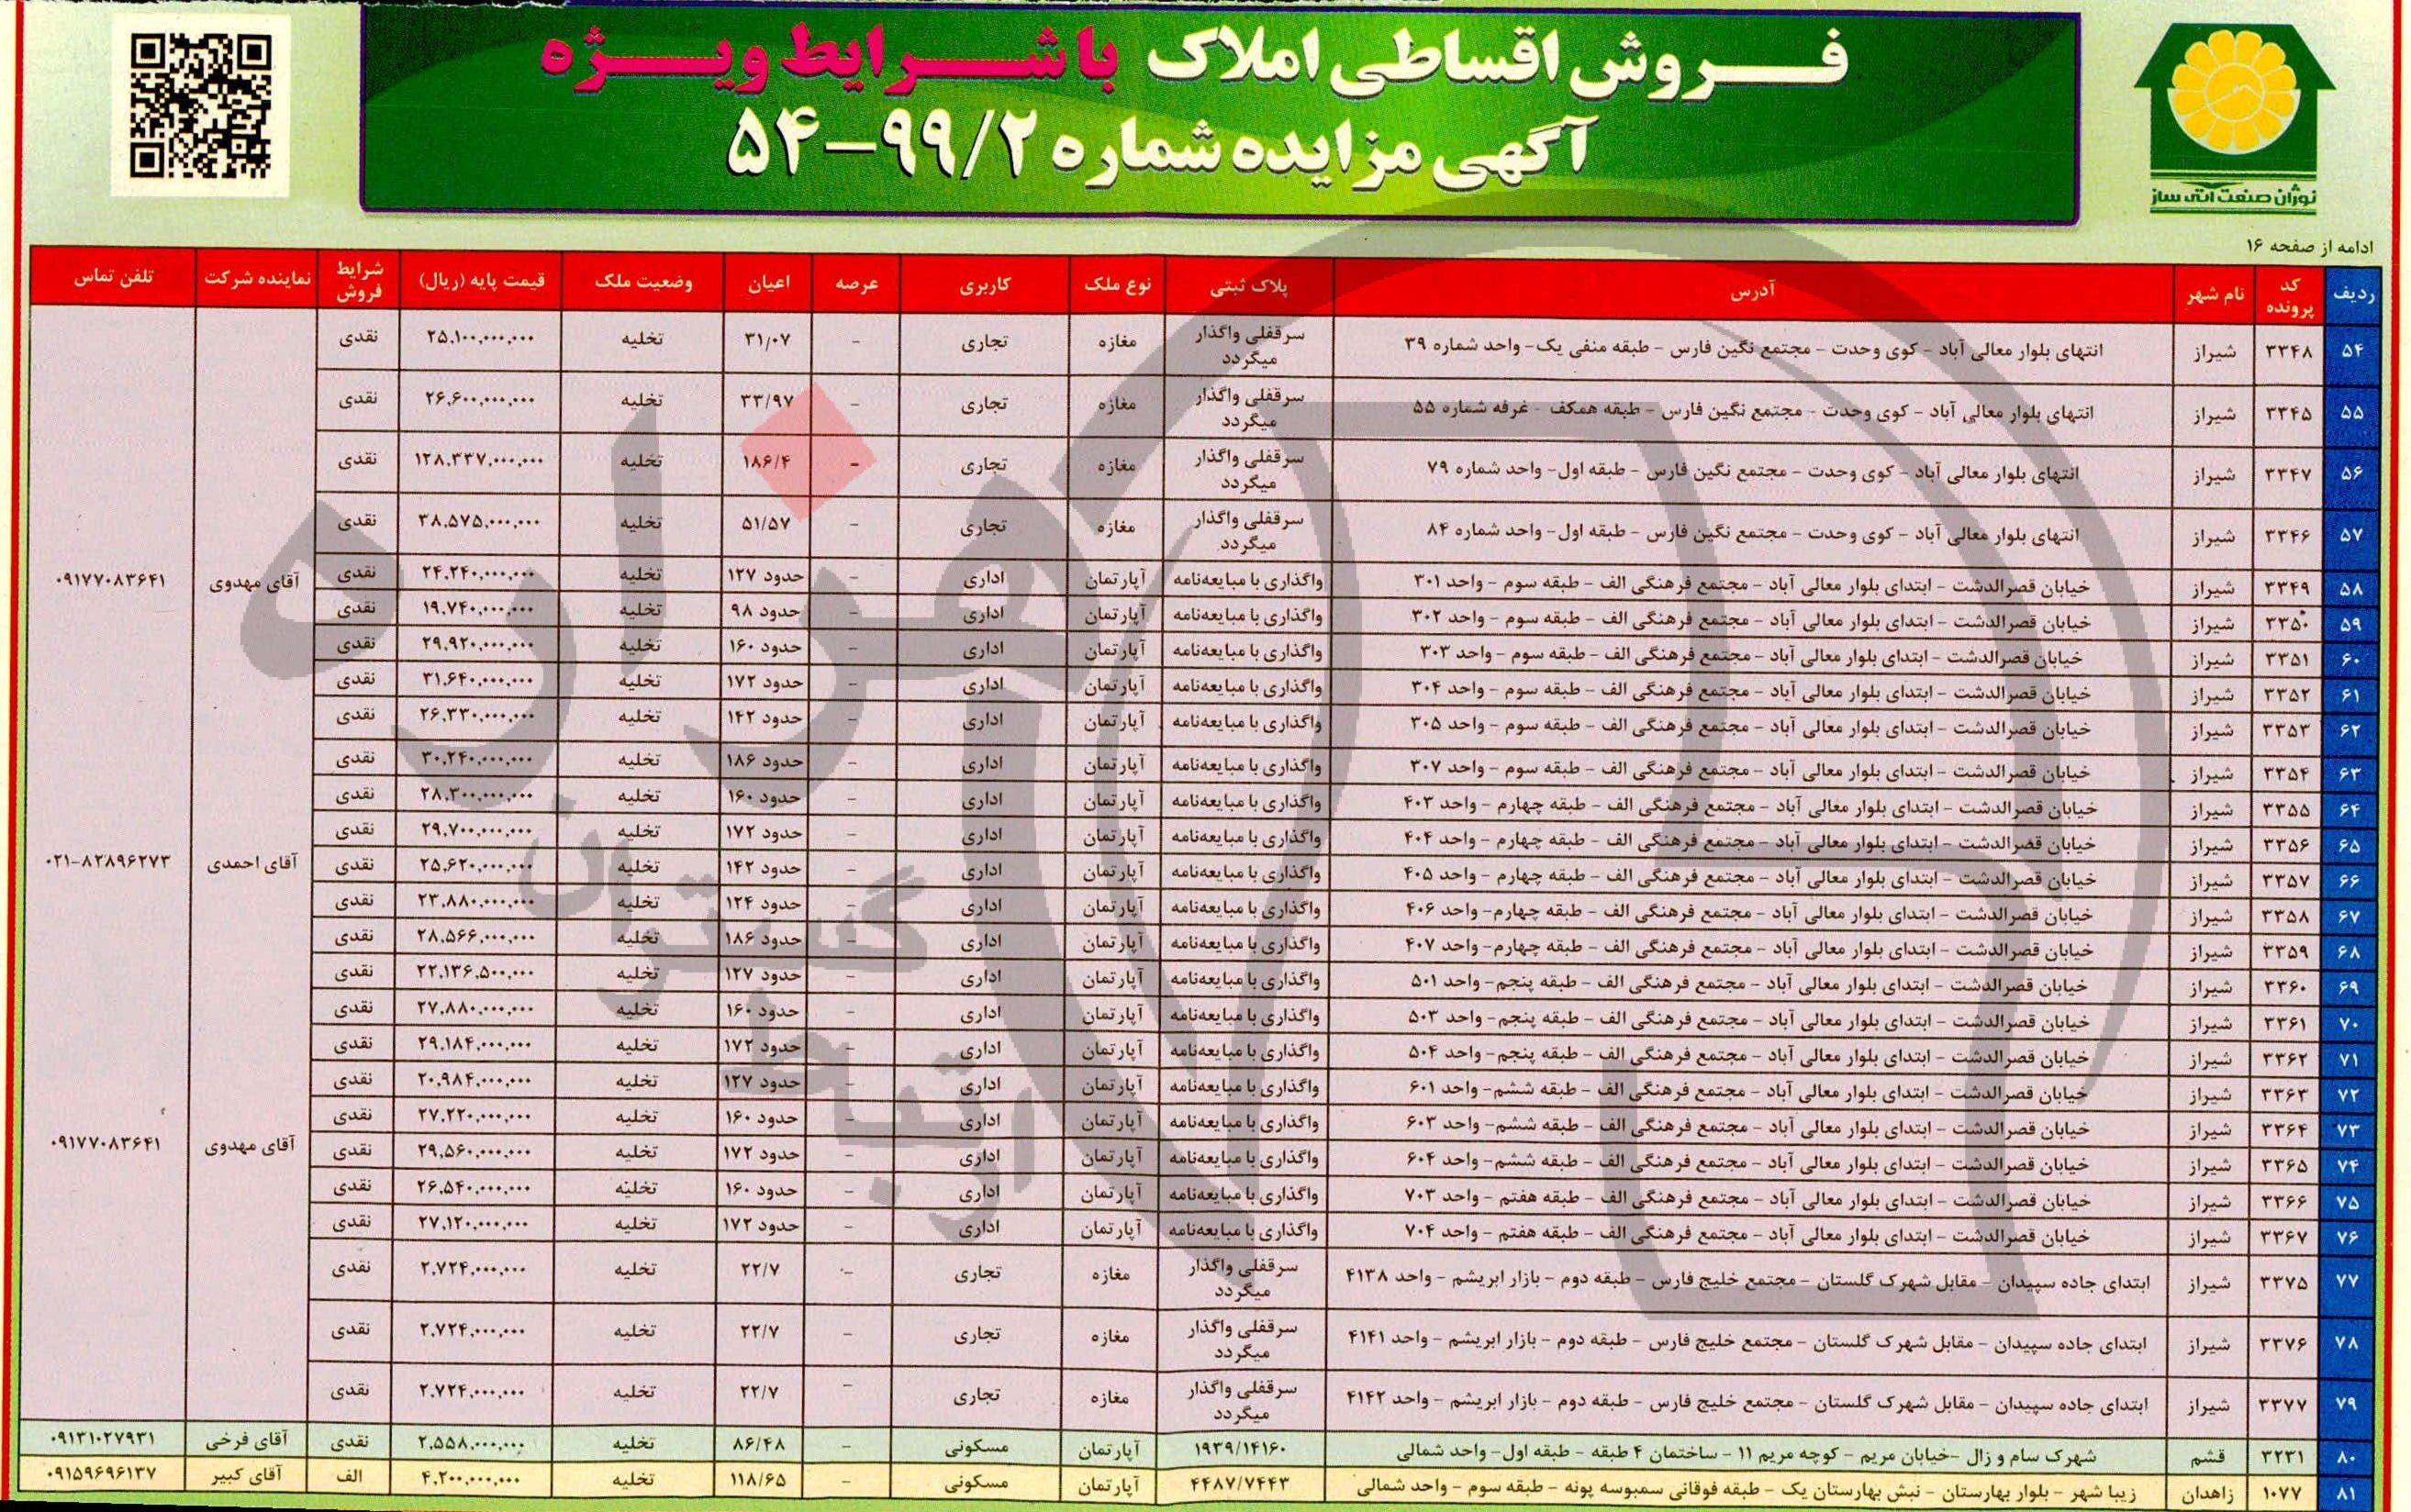 فروش اقساطی املاک با شرایط ویژه
آگهی مزایده شماره ۹۹/۲-۵۴
نوژان صنعت آتی ساز
ادامه از صفحه ۱۶
ردیف کد پرونده نام شهر آدرس پلاک ثبتی نوع ملک کاربری عرصه اعیان وضعیت ملک قیمت پایه (ریال) شرایط فروش نماینده شرکت تلفن تماس
۵۴ ۳۳۴۸ شیراز انتهای بلوار معالی آباد - کوی وحدت - مجتمع نگین فارس - طبقه منفی یک- واحد شماره ۳۹ سرقفلی واگذار میگردد مغازه تجاری - ۳۱/۰۷ تخلیه ۲۵,۱۰۰,۰۰۰,۰۰۰ نقدی
۵۵ ۳۳۴۵ شیراز انتهای بلوار معالی آباد - کوی وحدت - مجتمع نگین فارس - طبقه همکف - غرفه شماره ۵۵ سرقفلی واگذار میگردد مغازه تجاری - ۳۳/۹۷ تخلیه ۲۶,۶۰۰,۰۰۰,۰۰۰ نقدی
۵۶ ۳۳۴۷ شیراز انتهای بلوار معالی آباد - کوی وحدت - مجتمع نگین فارس - طبقه اول- واحد شماره ۷۹ سرقفلی واگذار میگردد مغازه تجاری - ۱۸۶/۴ تخلیه ۱۲۸,۳۳۷,۰۰۰,۰۰۰ نقدی
۵۷ ۳۳۴۶ شیراز انتهای بلوار معالی آباد - کوی وحدت - مجتمع نگین فارس - طبقه اول- واحد شماره ۸۴ سرقفلی واگذار میگردد مغازه تجاری - ۵۱/۵۷ تخلیه ۳۸,۵۷۵,۰۰۰,۰۰۰ نقدی
۵۸ ۳۳۴۹ شیراز خیابان قصرالدشت - ابتدای بلوار معالی آباد - مجتمع فرهنگی الف - طبقه سوم - واحد ۳۰۱ واگذاری با مبایعه‌نامه آپارتمان اداری - حدود ۱۲۷ تخلیه ۲۴,۲۴۰,۰۰۰,۰۰۰ نقدی آقای مهدوی ۰۹۱۷۷۰۸۳۶۴۱
۵۹ ۳۳۵۰ شیراز خیابان قصرالدشت - ابتدای بلوار معالی آباد - مجتمع فرهنگی الف - طبقه سوم - واحد ۳۰۲ واگذاری با مبایعه‌نامه آپارتمان اداری - حدود ۹۸ تخلیه ۱۹,۷۴۰,۰۰۰,۰۰۰ نقدی
۶۰ ۳۳۵۱ شیراز خیابان قصرالدشت - ابتدای بلوار معالی آباد - مجتمع فرهنگی الف - طبقه سوم - واحد ۳۰۳ واگذاری با مبایعه‌نامه آپارتمان اداری - حدود ۱۶۰ تخلیه ۲۹,۹۲۰,۰۰۰,۰۰۰ نقدی
۶۱ ۳۳۵۲ شیراز خیابان قصرالدشت - ابتدای بلوار معالی آباد - مجتمع فرهنگی الف - طبقه سوم - واحد ۳۰۴ واگذاری با مبایعه‌نامه آپارتمان اداری - حدود ۱۷۲ تخلیه ۳۱,۶۴۰,۰۰۰,۰۰۰ نقدی
۶۲ ۳۳۵۳ شیراز خیابان قصرالدشت - ابتدای بلوار معالی آباد - مجتمع فرهنگی الف - طبقه سوم - واحد ۳۰۵ واگذاری با مبایعه‌نامه آپارتمان اداری - حدود ۱۴۲ تخلیه ۲۶,۳۳۰,۰۰۰,۰۰۰ نقدی
۶۳ ۳۳۵۴ شیراز خیابان قصرالدشت - ابتدای بلوار معالی آباد - مجتمع فرهنگی الف - طبقه سوم - واحد ۳۰۷ واگذاری با مبایعه‌نامه آپارتمان اداری - حدود ۱۸۶ تخلیه ۳۰,۲۴۰,۰۰۰,۰۰۰ نقدی
۶۴ ۳۳۵۵ شیراز خیابان قصرالدشت - ابتدای بلوار معالی آباد - مجتمع فرهنگی الف - طبقه چهارم - واحد ۴۰۳ واگذاری با مبایعه‌نامه آپارتمان اداری - حدود ۱۶۰ تخلیه ۲۸,۳۰۰,۰۰۰,۰۰۰ نقدی
۶۵ ۳۳۵۶ شیراز خیابان قصرالدشت - ابتدای بلوار معالی آباد - مجتمع فرهنگی الف - طبقه چهارم - واحد ۴۰۴ واگذاری با مبایعه‌نامه آپارتمان اداری - حدود ۱۷۲ تخلیه ۲۹,۷۰۰,۰۰۰,۰۰۰ نقدی
۶۶ ۳۳۵۷ شیراز خیابان قصرالدشت - ابتدای بلوار معالی آباد - مجتمع فرهنگی الف - طبقه چهارم - واحد ۴۰۵ واگذاری با مبایعه‌نامه آپارتمان اداری - حدود ۱۴۲ تخلیه ۲۵,۶۲۰,۰۰۰,۰۰۰ نقدی آقای احمدی ۰۲۱-۸۲۸۹۶۲۷۳
۶۷ ۳۳۵۸ شیراز خیابان قصرالدشت - ابتدای بلوار معالی آباد - مجتمع فرهنگی الف - طبقه چهارم- واحد ۴۰۶ واگذاری با مبایعه‌نامه آپارتمان اداری - حدود ۱۲۴ تخلیه ۲۳,۸۸۰,۰۰۰,۰۰۰ نقدی
۶۸ ۳۳۵۹ شیراز خیابان قصرالدشت - ابتدای بلوار معالی آباد - مجتمع فرهنگی الف - طبقه چهارم- واحد ۴۰۷ واگذاری با مبایعه‌نامه آپارتمان اداری - حدود ۱۸۶ تخلیه ۲۸,۵۶۶,۰۰۰,۰۰۰ نقدی
۶۹ ۳۳۶۰ شیراز خیابان قصرالدشت - ابتدای بلوار معالی آباد - مجتمع فرهنگی الف - طبقه پنجم- واحد ۵۰۱ واگذاری با مبایعه‌نامه آپارتمان اداری - حدود ۱۲۷ تخلیه ۲۲,۱۳۶,۵۰۰,۰۰۰ نقدی
۷۰ ۳۳۶۱ شیراز خیابان قصرالدشت - ابتدای بلوار معالی آباد - مجتمع فرهنگی الف - طبقه پنجم- واحد ۵۰۳ واگذاری با مبایعه‌نامه آپارتمان اداری - حدود ۱۶۰ تخلیه ۲۷,۸۸۰,۰۰۰,۰۰۰ نقدی
۷۱ ۳۳۶۲ شیراز خیابان قصرالدشت - ابتدای بلوار معالی آباد - مجتمع فرهنگی الف - طبقه پنجم- واحد ۵۰۴ واگذاری با مبایعه‌نامه آپارتمان اداری - حدود ۱۷۲ تخلیه ۲۹,۱۸۴,۰۰۰,۰۰۰ نقدی
۷۲ ۳۳۶۳ شیراز خیابان قصرالدشت - ابتدای بلوار معالی آباد - مجتمع فرهنگی الف - طبقه ششم- واحد ۶۰۱ واگذاری با مبایعه‌نامه آپارتمان اداری - حدود ۱۲۷ تخلیه ۲۰,۹۸۴,۰۰۰,۰۰۰ نقدی
۷۳ ۳۳۶۴ شیراز خیابان قصرالدشت - ابتدای بلوار معالی آباد - مجتمع فرهنگی الف - طبقه ششم- واحد ۶۰۳ واگذاری با مبایعه‌نامه آپارتمان اداری - حدود ۱۶۰ تخلیه ۲۷,۲۲۰,۰۰۰,۰۰۰ نقدی
۷۴ ۳۳۶۵ شیراز خیابان قصرالدشت - ابتدای بلوار معالی آباد - مجتمع فرهنگی الف - طبقه ششم- واحد ۶۰۴ واگذاری با مبایعه‌نامه آپارتمان اداری - حدود ۱۷۲ تخلیه ۲۹,۵۶۰,۰۰۰,۰۰۰ نقدی آقای مهدوی ۰۹۱۷۷۰۸۳۶۴۱
۷۵ ۳۳۶۶ شیراز خیابان قصرالدشت - ابتدای بلوار معالی آباد - مجتمع فرهنگی الف - طبقه هفتم - واحد ۷۰۳ واگذاری با مبایعه‌نامه آپارتمان اداری - حدود ۱۶۰ تخلیه ۲۶,۵۴۰,۰۰۰,۰۰۰ نقدی
۷۶ ۳۳۶۷ شیراز خیابان قصرالدشت - ابتدای بلوار معالی آباد - مجتمع فرهنگی الف - طبقه هفتم - واحد ۷۰۴ واگذاری با مبایعه‌نامه آپارتمان اداری - حدود ۱۷۲ تخلیه ۲۷,۱۲۰,۰۰۰,۰۰۰ نقدی
۷۷ ۳۳۷۵ شیراز ابتدای جاده سپیدان - مقابل شهرک گلستان - مجتمع خلیج فارس - طبقه دوم - بازار ابریشم - واحد ۴۱۳۸ سرقفلی واگذار میگردد مغازه تجاری - ۲۲/۷ تخلیه ۲,۷۲۴,۰۰۰,۰۰۰ نقدی
۷۸ ۳۳۷۶ شیراز ابتدای جاده سپیدان - مقابل شهرک گلستان - مجتمع خلیج فارس - طبقه دوم - بازار ابریشم - واحد ۴۱۴۱ سرقفلی واگذار میگردد مغازه تجاری - ۲۲/۷ تخلیه ۲,۷۲۴,۰۰۰,۰۰۰ نقدی
۷۹ ۳۳۷۷ شیراز ابتدای جاده سپیدان - مقابل شهرک گلستان - مجتمع خلیج فارس - طبقه دوم - بازار ابریشم - واحد ۴۱۴۲ سرقفلی واگذار میگردد مغازه تجاری - ۲۲/۷ تخلیه ۲,۷۲۴,۰۰۰,۰۰۰ نقدی
۸۰ ۳۲۳۱ قشم شهرک سام و زال -خیابان مریم - کوچه مریم ۱۱ - ساختمان ۴ طبقه - طبقه اول- واحد شمالی ۱۹۳۹/۱۴۱۶۰ آپارتمان مسکونی - ۸۶/۴۸ تخلیه ۲,۵۵۸,۰۰۰,۰۰۰ نقدی آقای فرخی ۰۹۱۳۱۰۲۷۹۳۱
۸۱ ۱۰۷۷ زاهدان زیبا شهر - بلوار بهارستان - نبش بهارستان یک - طبقه فوقانی سمبوسه پونه - طبقه سوم - واحد شمالی ۴۴۸۷/۷۴۴۳ آپارتمان مسکونی - ۱۱۸/۶۵ تخلیه ۴,۲۰۰,۰۰۰,۰۰۰ الف آقای کبیر ۰۹۱۵۹۶۹۶۱۳۷